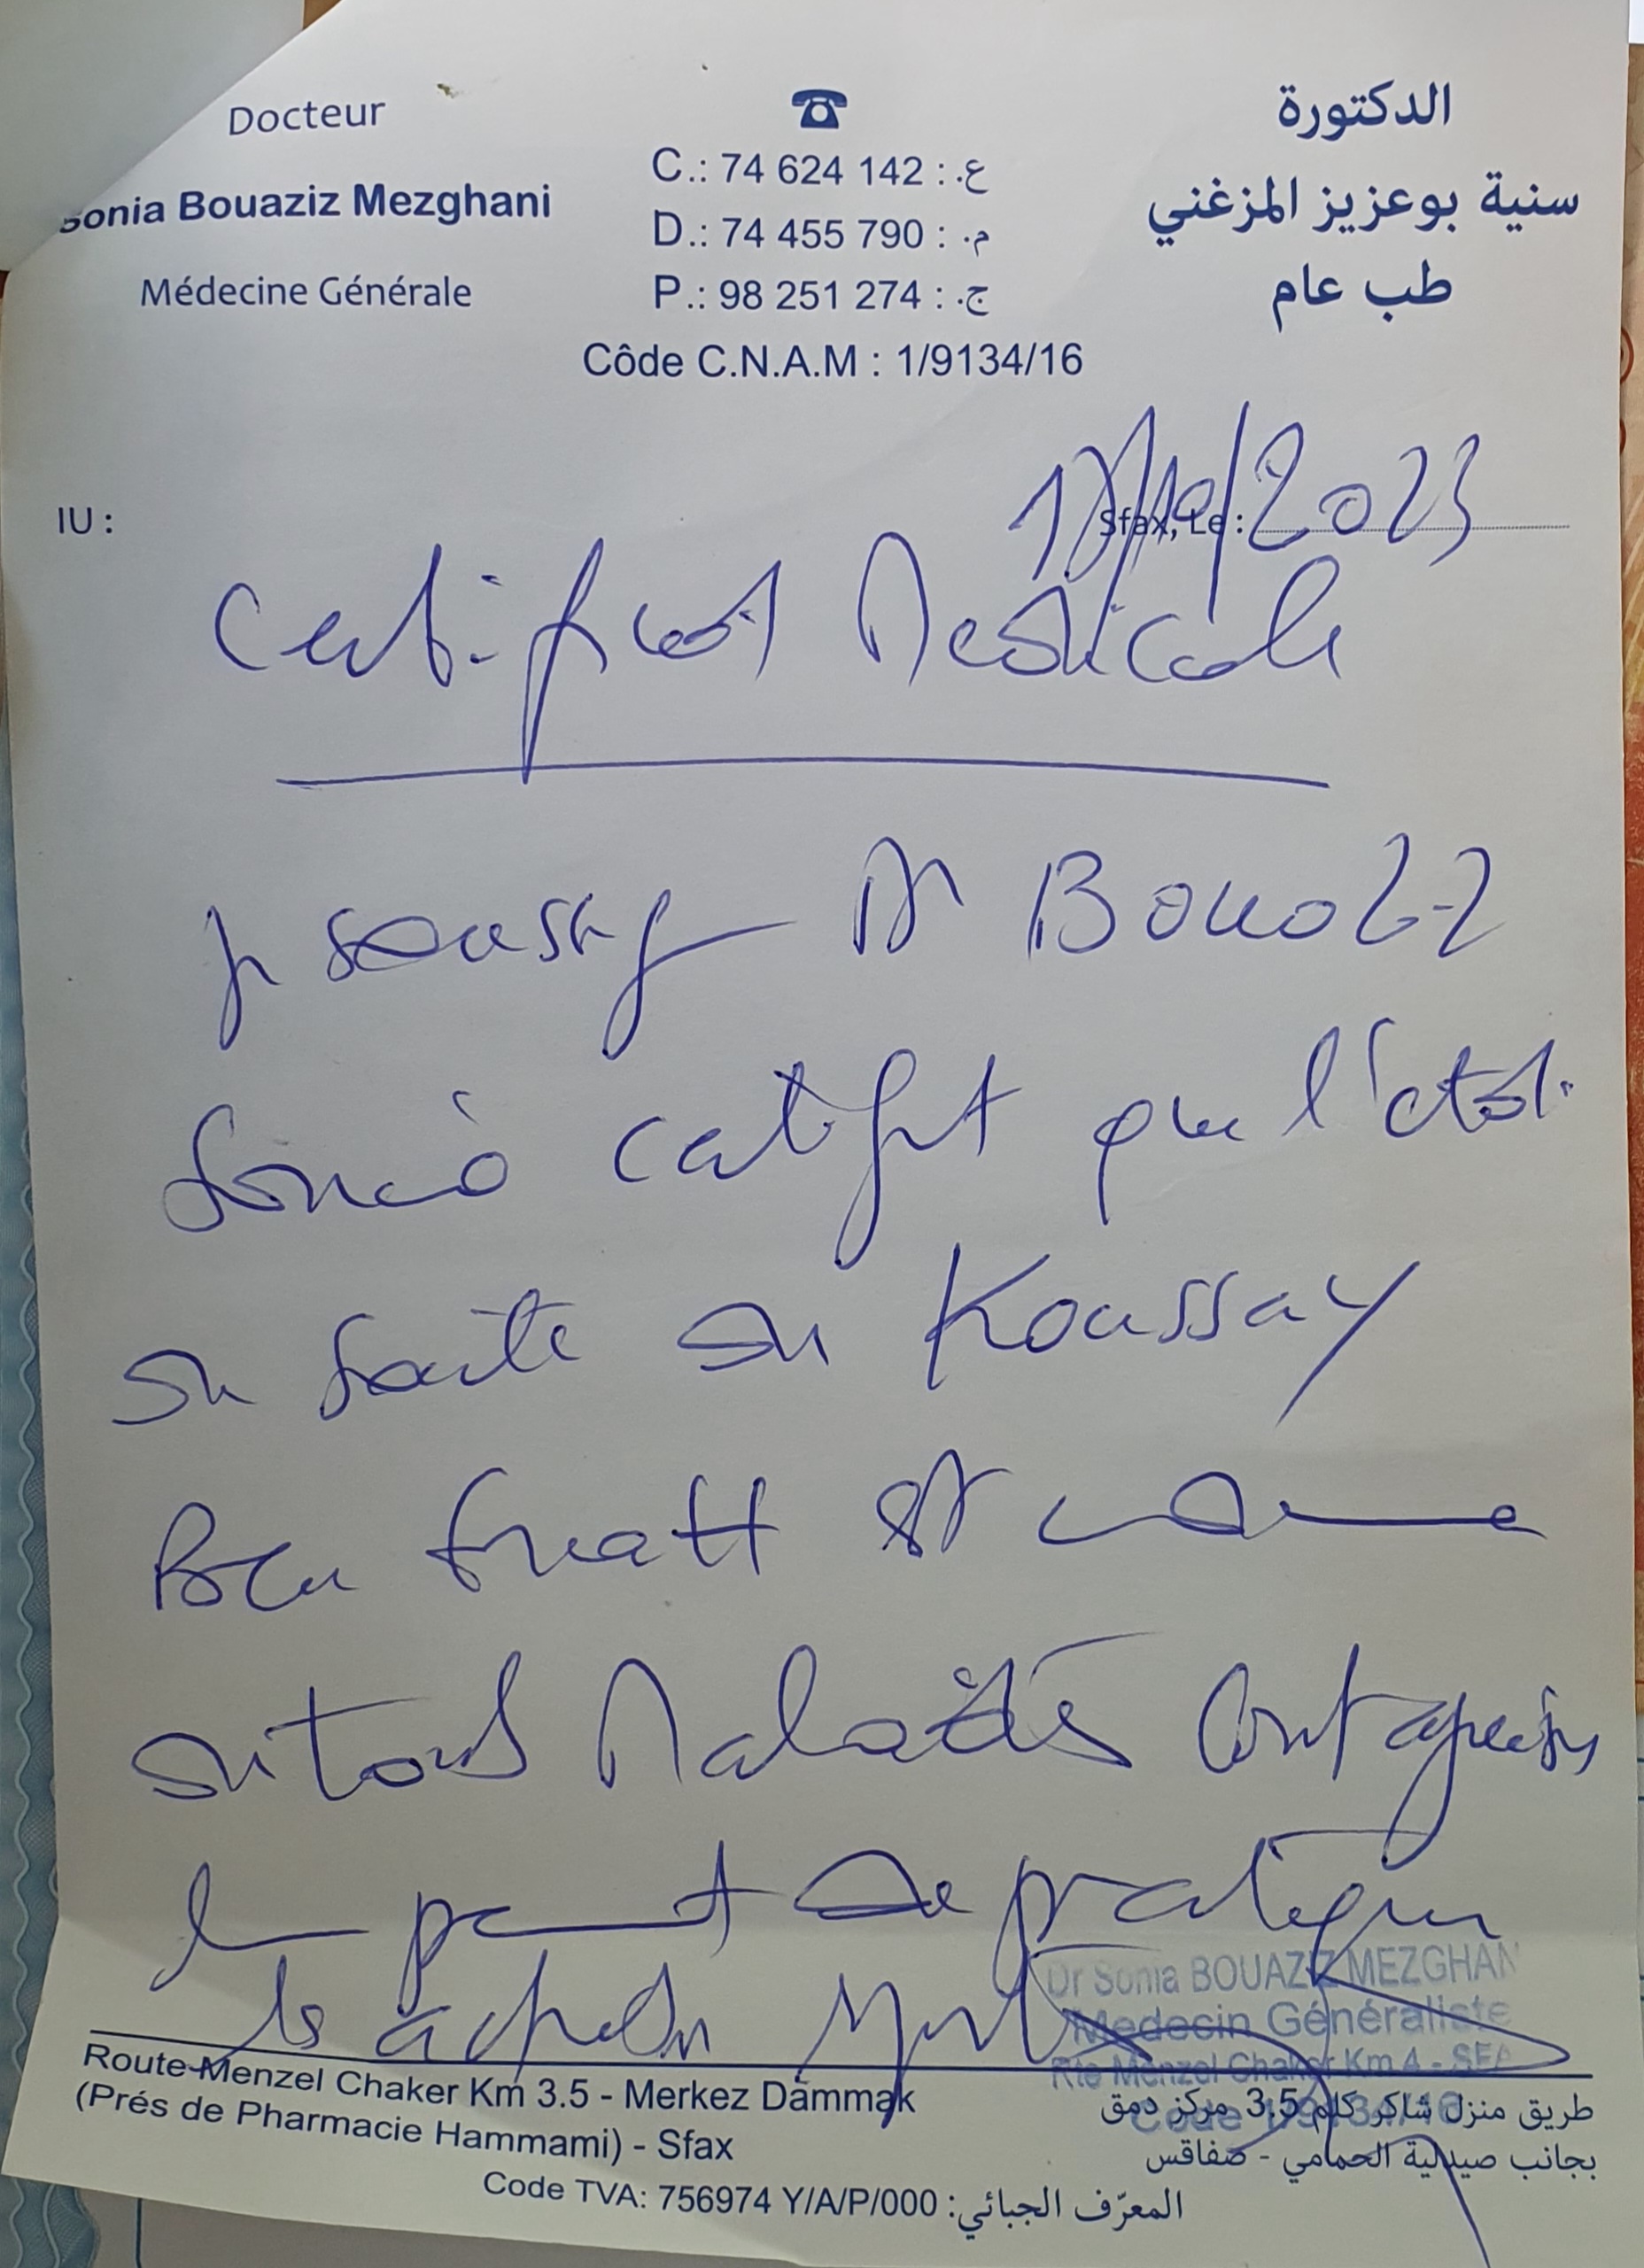 Docteur
Sonia Bouaziz Mezghani
Médecine Générale
C.: 74 624 142 : ع.
D.: 74 455 790 : م.
P.: 98 251 274 : ج.
Côde C.N.A.M : 1/9134/16
الدكتورة
سنية بوعزيز المزغني
طب عام
IU :
Sfax, Le : /2023
Certificat Medicale
je soussigne Dr Bouaziz
Sonia certifit que l'etat
de Sante de Koussay
Ben est indemne
de tout Maladies Contagieuses
permet de pratiquer
les
Dr Sonia BOUAZIZ MEZGHAN
Medecin Généraliste
Rte Menzel Chaker Km 4 - SFA
Code
Route Menzel Chaker Km 3.5 - Merkez Dammak
(Prés de Pharmacie Hammami) - Sfax
طريق منزل شاكر كلم 3,5 مركز دمق
بجانب صيدلية الحمامي - صفاقس
Code TVA: 756974 Y/A/P/000 : المعرّف الجبائي